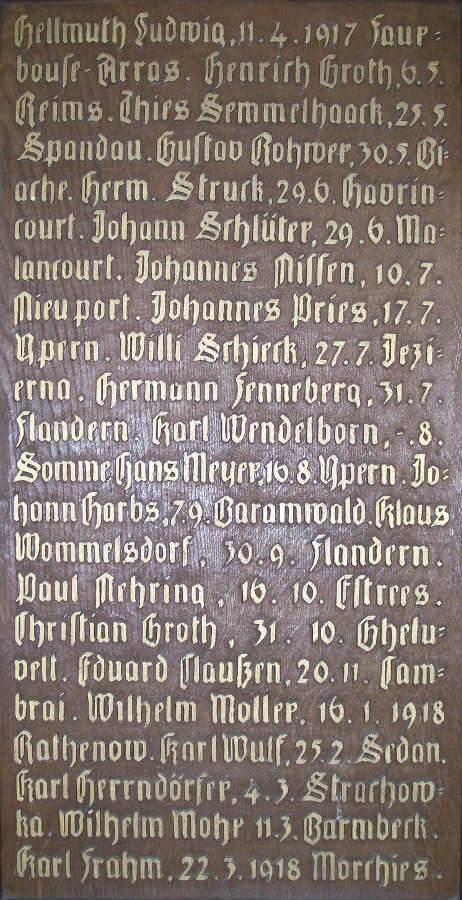 Hellmuth Ludwig, 11.4.1917 Faue=
bouse-Arras. Henrich Groth, 6.5.
Reims. Thies Semmelhaack, 25.5.
Spandau. Gustav Rohwer, 30.5. Bi=
ache. Herm. Struck, 29.6. Havrin=
court. Johann Schlüter, 29.6. Ma=
lancourt. Johannes Nissen, 10.7.
Nieuport. Johannes Pries, 17.7.
Ypern. Willi Schieck, 27.7. Jezi=
erna. Hermann Fenneberg, 31.7.
Flandern. Karl Wendelborn, -.8.
Somme Hans Meyer, 16.8. Ypern. Jo=
hann Harbs, 7.9. Baramwald. Klaus
Wommelsdorf, 30.9. Flandern.
Paul Nehring, 16.10. Estrees.
Christian Groth, 31.10. Ghelu=
velt. Eduard Claußen, 20.11. Cam=
brai. Wilhelm Möller, 16.1.1918
Rathenow. Karl Wulf, 25.2. Sedan.
Karl Herrndörfer, 4.3. Strachow=
ka. Wilhelm Mohr 11.3. Barmbeck.
Karl Frahm, 22.3.1918 Morchies.